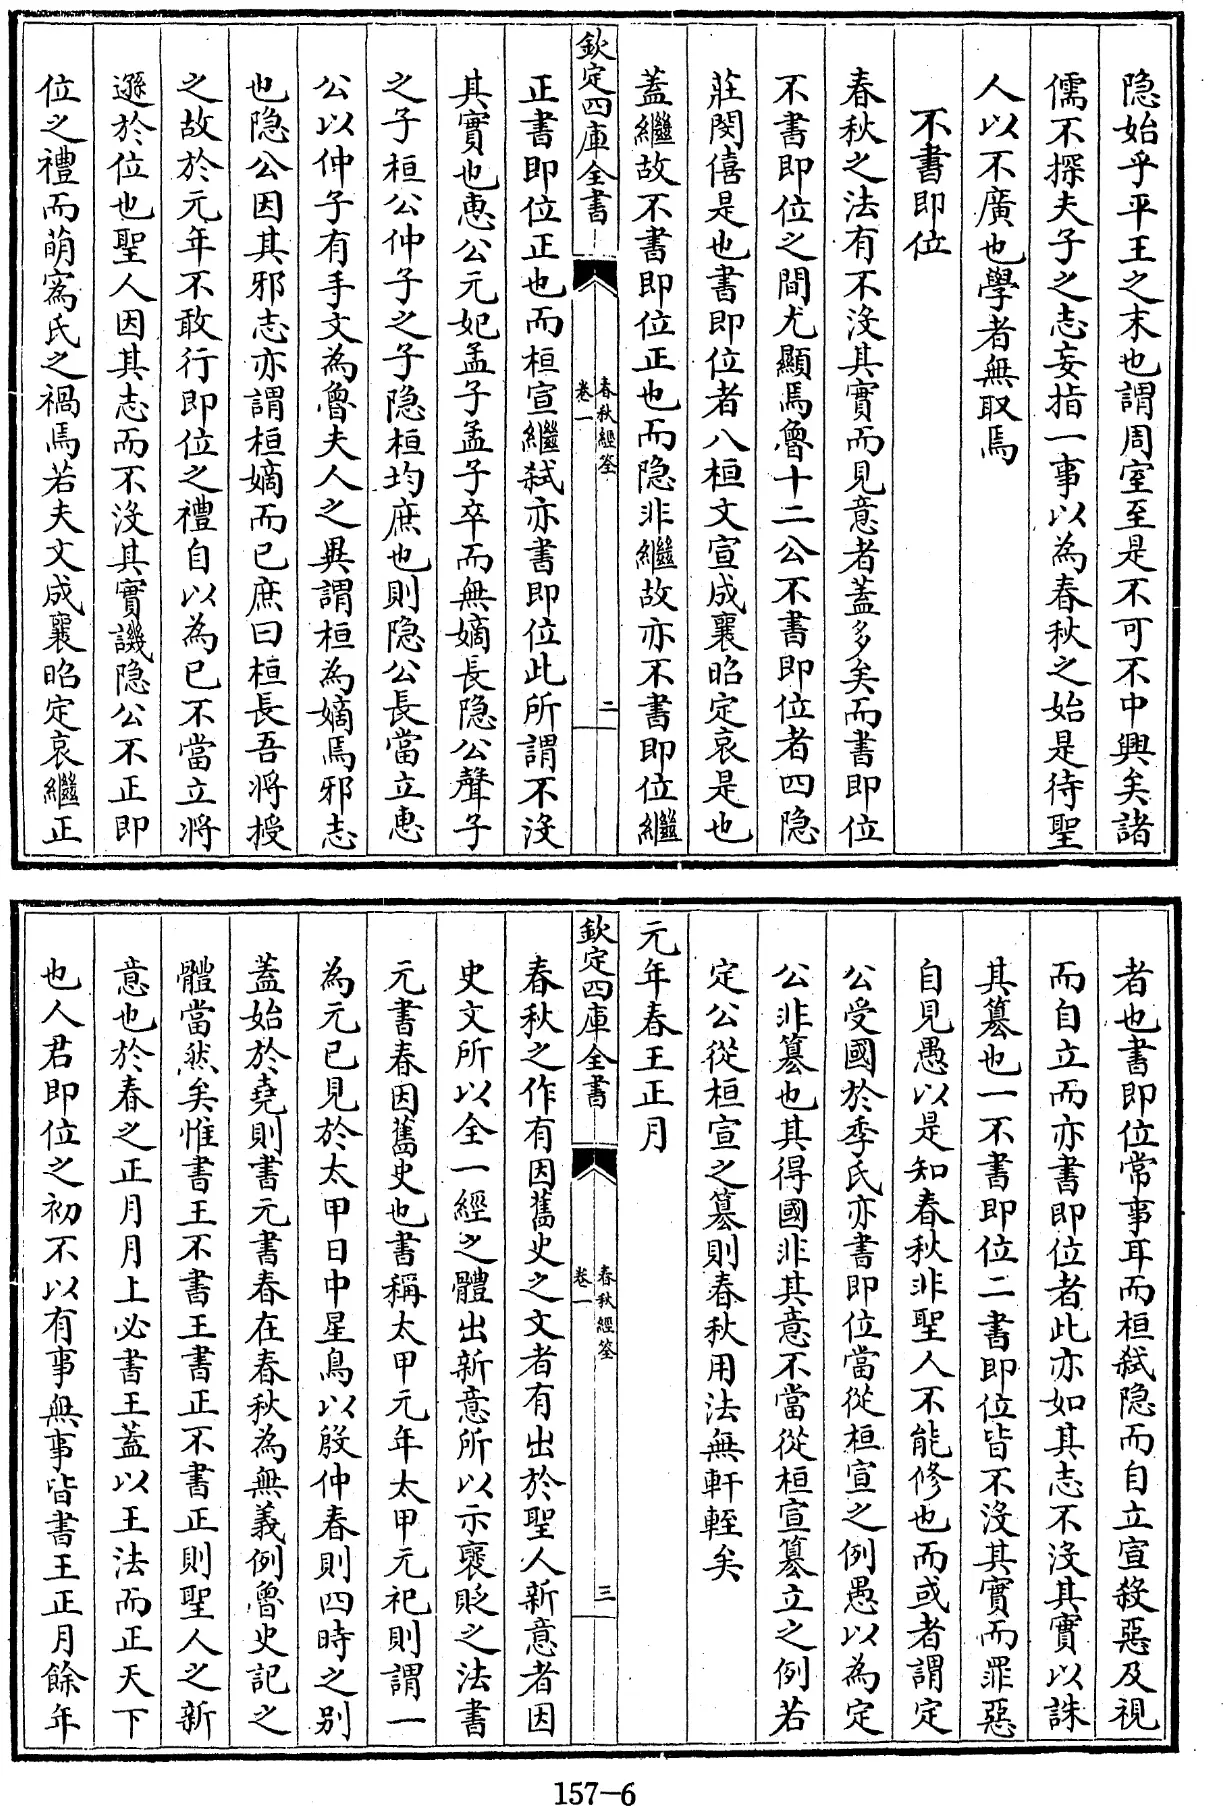 隐始乎平王之末也謂周室至是不可不中興矣諸
儒不探夫子之志妄指一事以為春秋之始是待聖
人以不廣也學者無取焉
不書即位
春秋之法有不沒其實而見意者蓋多矣而書即位
不書即位之間尤顯焉魯十二公不書即位者四隐
莊閔僖是也書即位者八桓文宣成襄昭定哀是也
蓋繼故不書即位正也而隐非繼故亦不書即位繼
欽定四庫全書
春秋經筌
卷一
二
正書即位正也而桓宣繼弑亦書即位此所謂不沒
其實也惠公元妃孟子孟子卒而無嫡長隐公聲子
之子桓公仲子之子隐桓均庶也則隐公長當立惠
公以仲子有手文為魯夫人之異謂桓為嫡焉邪志
也隐公因其邪志亦謂桓嫡而已庶曰桓長吾將授
之故於元年不敢行即位之禮自以為已不當立將
遜於位也聖人因其志而不沒其實譏隐公不正即
位之禮而萌寪氏之禍焉若夫文成襄昭定哀繼正
者也書即位常事耳而桓弑隐而自立宣殺惡及視
而自立而亦書即位者此亦如其志不沒其實以誅
其簒也一不書即位二書即位皆不沒其實而罪惡
自見愚以是知春秋非聖人不能修也而或者謂定
公受國於季氏亦書即位當從桓宣之例愚以為定
公非簒也其得國非其意不當從桓宣簒立之例若
定公從桓宣之簒則春秋用法無軒輊矣
元年春王正月
欽定四庫全書
春秋經筌
卷一
三
春秋之作有因舊史之文者有出於聖人新意者因
史文所以全一經之體出新意所以示襃貶之法書
元書春因舊史也書稱太甲元年太甲元祀則謂一
為元已見於太甲日中星鳥以殷仲春則四時之别
蓋始於堯則書元書春在春秋為無義例魯史記之
體當然矣惟書王不書王書正不書正則聖人之新
意也於春之正月月上必書王蓋以王法而正天下
也人君即位之初不以有事無事皆書王正月餘年
157-6